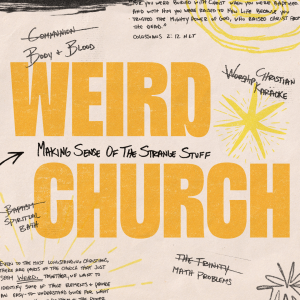 COMMUNION
BODY & BLOOD
YOU WERE BURIED WITH CHRIST WHEN YOU WERE BAPTIZED.
AND WITH HIM YOU WERE RAISED TO NEW LIFE BECAUSE YOU
TRUSTED THE MIGHTY POWER OF GOD, WHO RAISED CHRIST FROM
THE DEAD."
COLOSSIANS 2:12 NLT
WEIRD
WORSHIP
CHRISTIAN
KARAOKE
MAKING SENSE OF THE STRANGE STUFF
CHURCH
BAPTISM
SPIRITUAL
BATH
EVEN TO THE MOST LONGSTANDING CHRISTIANS,
THERE ARE PARTS OF THE CHURCH THAT JUST
SEEM WEIRD. TOGETHER, WE WANT TO
IDENTIFY SOME OF THOSE
AN EASY-TO-UNDERSTAND GUIDE FOR WHAT
THE TRINITY
MATH PROBLEMS